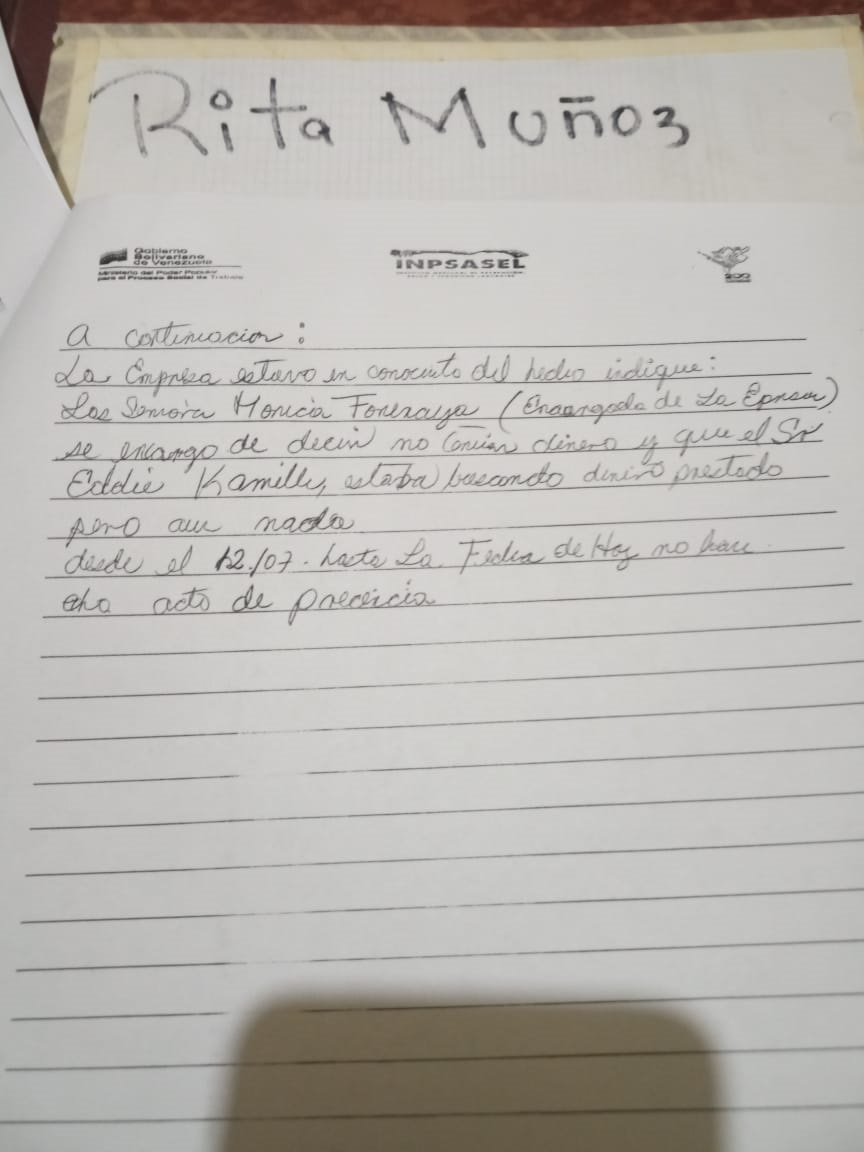 Rita Muñoz
Gobierno
Bolivariano
de Venezuela
Ministerio del Poder Popular
para el Proceso Social de Trabajo
INPSASEL
200
a continuacion :
La Empresa estuvo en conocuito del hecho indique:
Las Senora Monica (Encargada de La Epresa)
se encargo de decir no tenian dinero y que el Sr
Eddie Kamilly, estaba buscando dinero prestado
pero aun nada
desde el 12/07. hasta La Fecha de Hoy no han
echo acto de